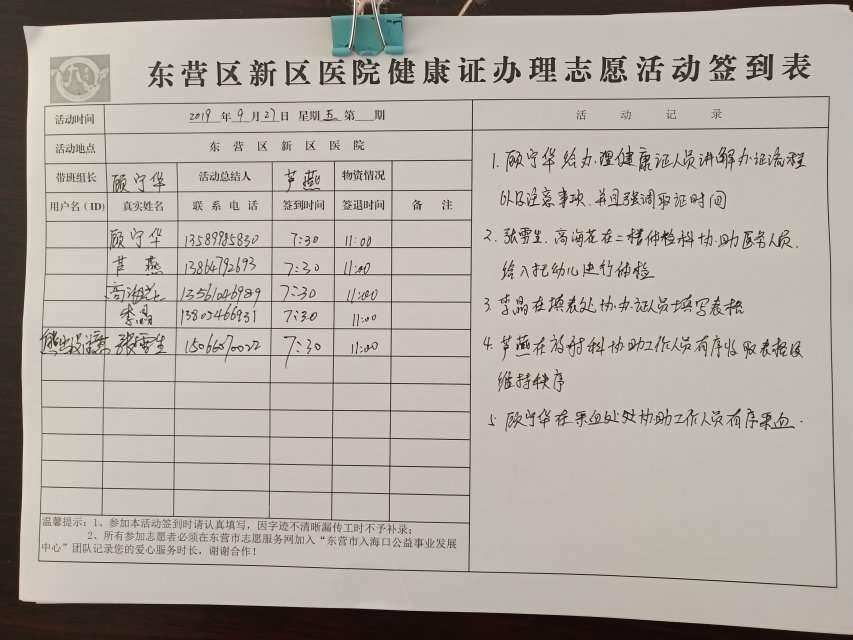 东营区新区医院健康证办理志愿活动签到表
活动时间 2019 年 9 月 27 日 星期 五 第 期
活动地点 东营区新区医院
带班组长 顾宁华 活动总结人 芦燕 物资情况
用户名(ID) 真实姓名 联系电话 签到时间 签退时间 备注
顾宁华 13589985830 7:30 11:00
芦燕 13864792693 7:30 11:00
高海花 13561046989 7:30 11:00
李晶 7:30 11:00
张雪生 7:30 11:00
温馨提示:1、参加本活动签到时请认真填写,因字迹不清晰漏传工时不予补录;
2、所有参加志愿者必须在东营市志愿服务网加入“东营市入海口公益事业发展
中心”团队记录您的爱心服务时长,谢谢合作!
活动记录
1. 顾宁华给办理健康证人员讲解办证流程
以及注意事项.并且强调取证时间
2. 张雪生.高海花在二楼体检科协助医务人员.
给入托幼儿进行体检
3. 李晶在填表处协办证人员填写表格
4. 芦燕在放射科协助工作人员有序收取表格及
维持秩序
5. 顾宁华在采血处处协助工作人员有序采血.